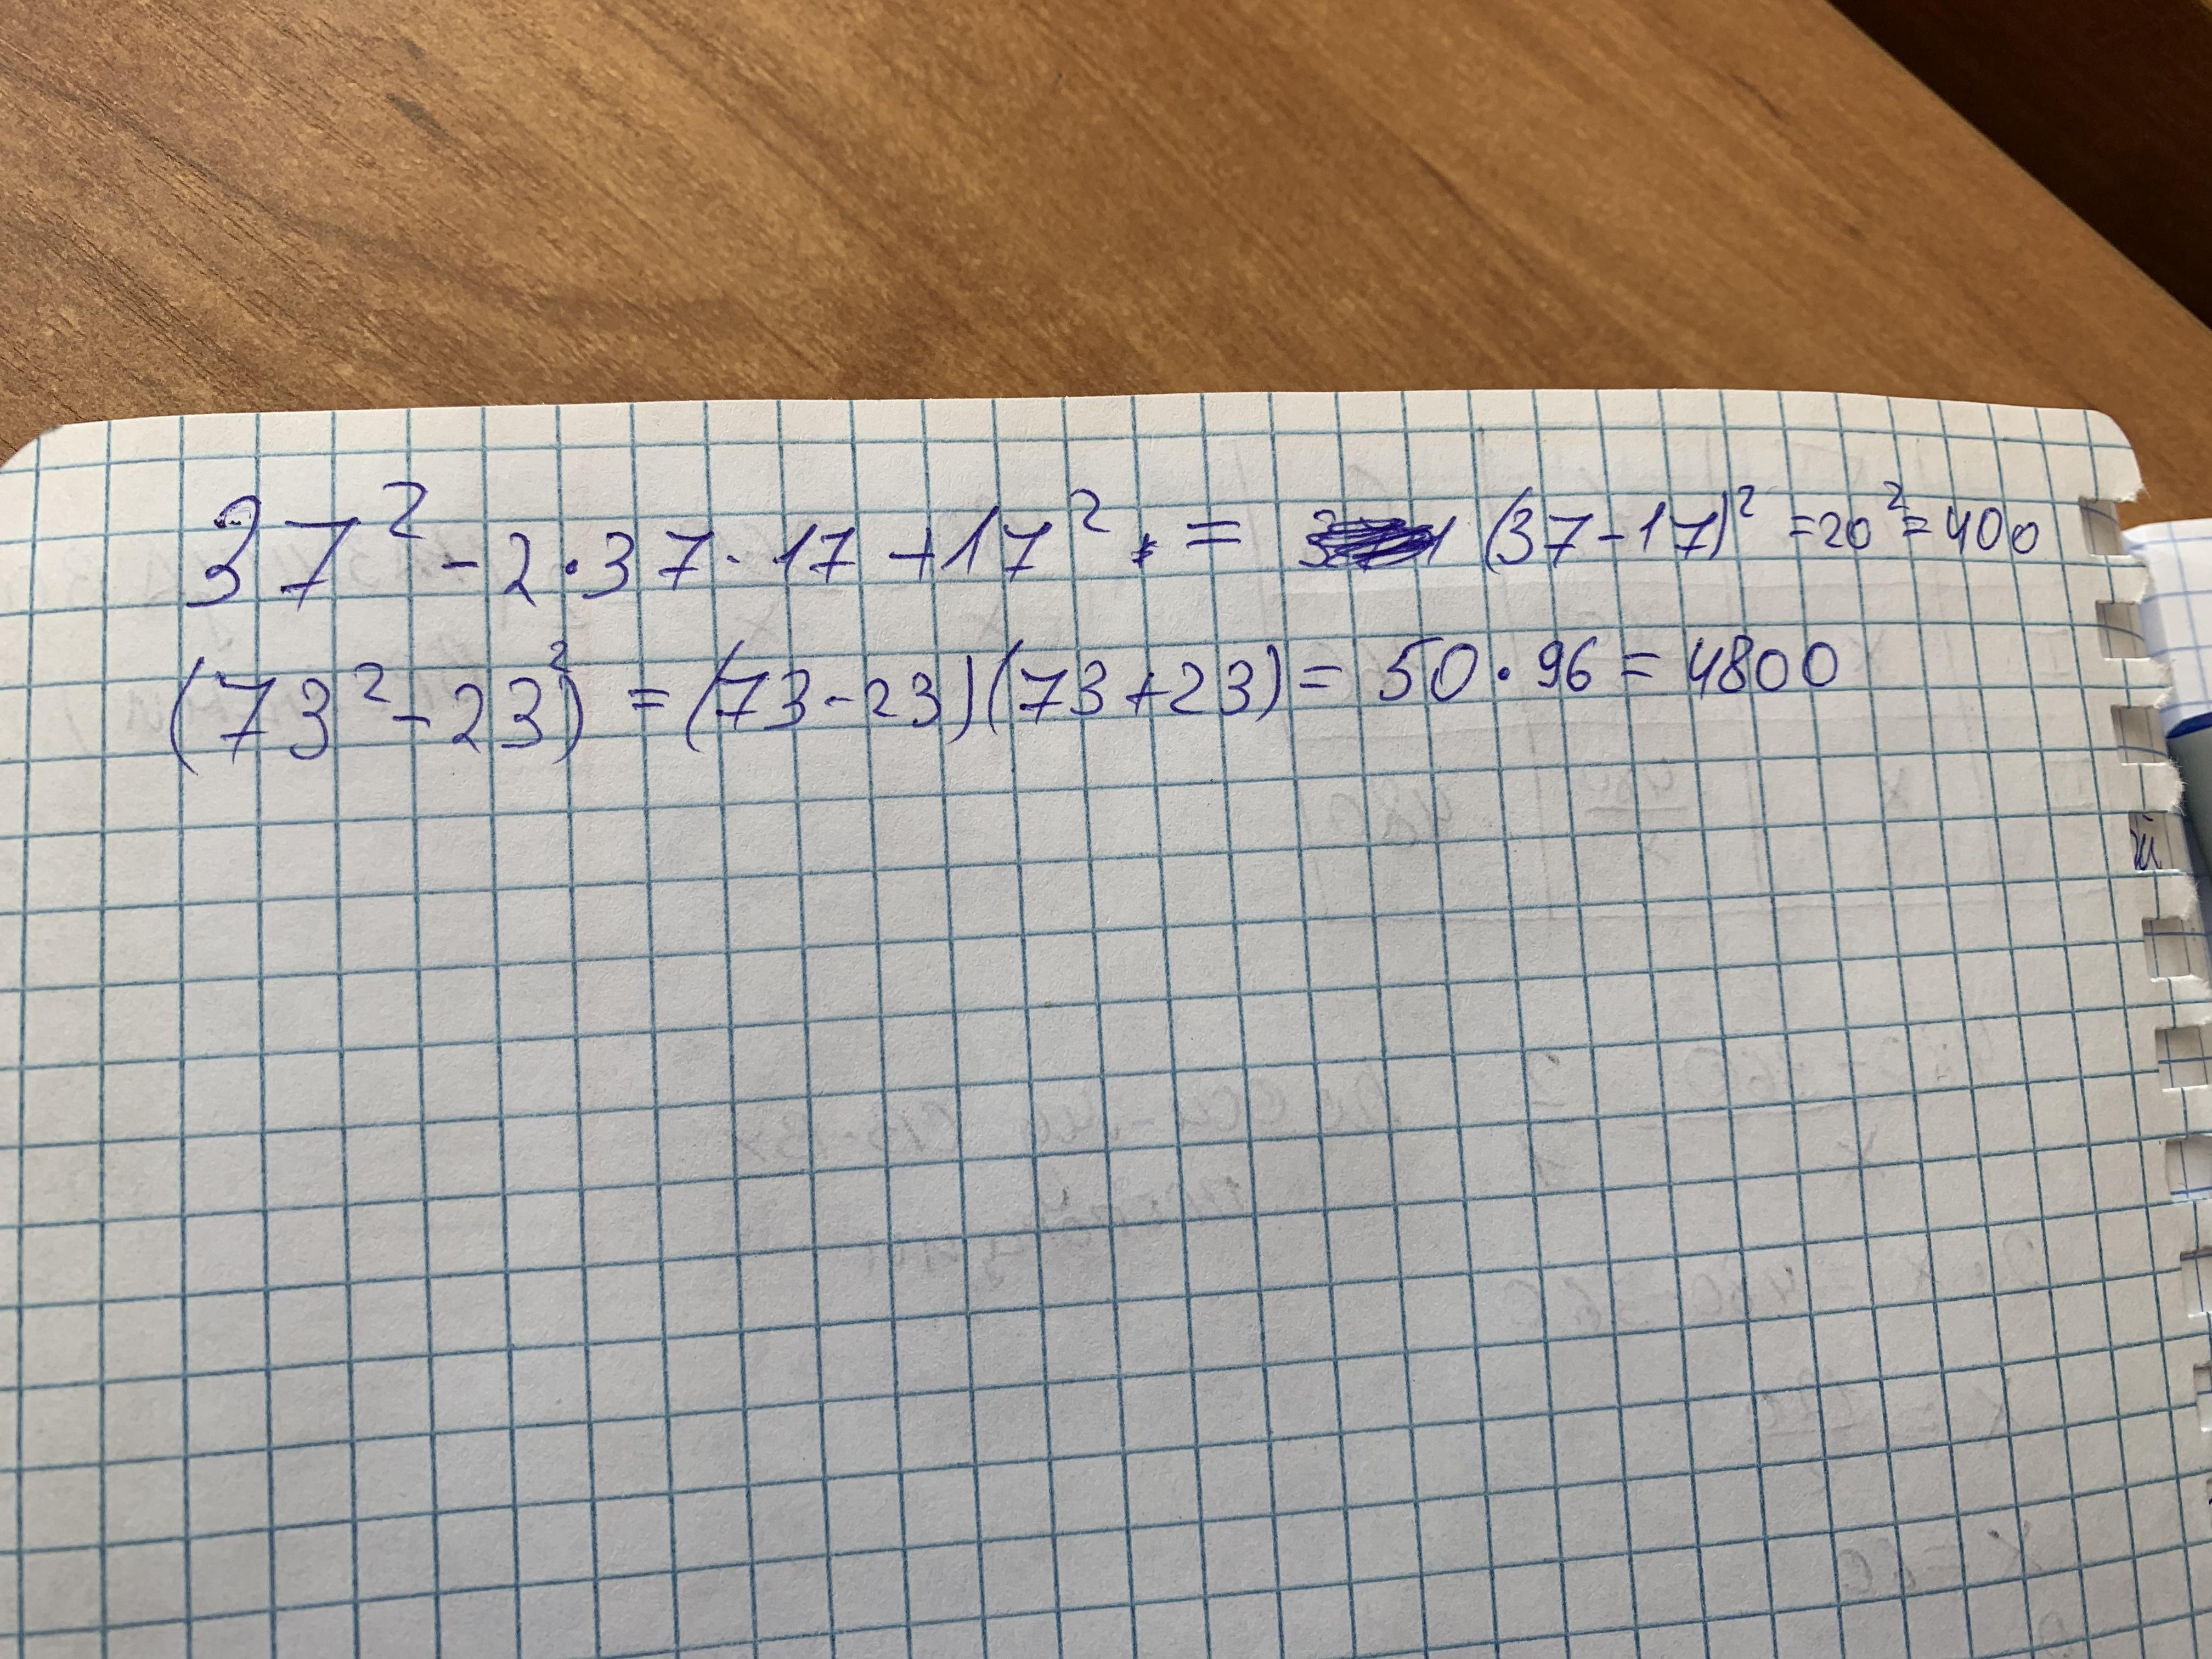 37² - 2 · 37 · 17 + 17² . = (37 - 17)² = 20² = 400
(73² - 23²) = (73 - 23)(73 + 23) = 50 · 96 = 4800